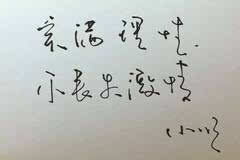 充满理性.
不丧失激情
小